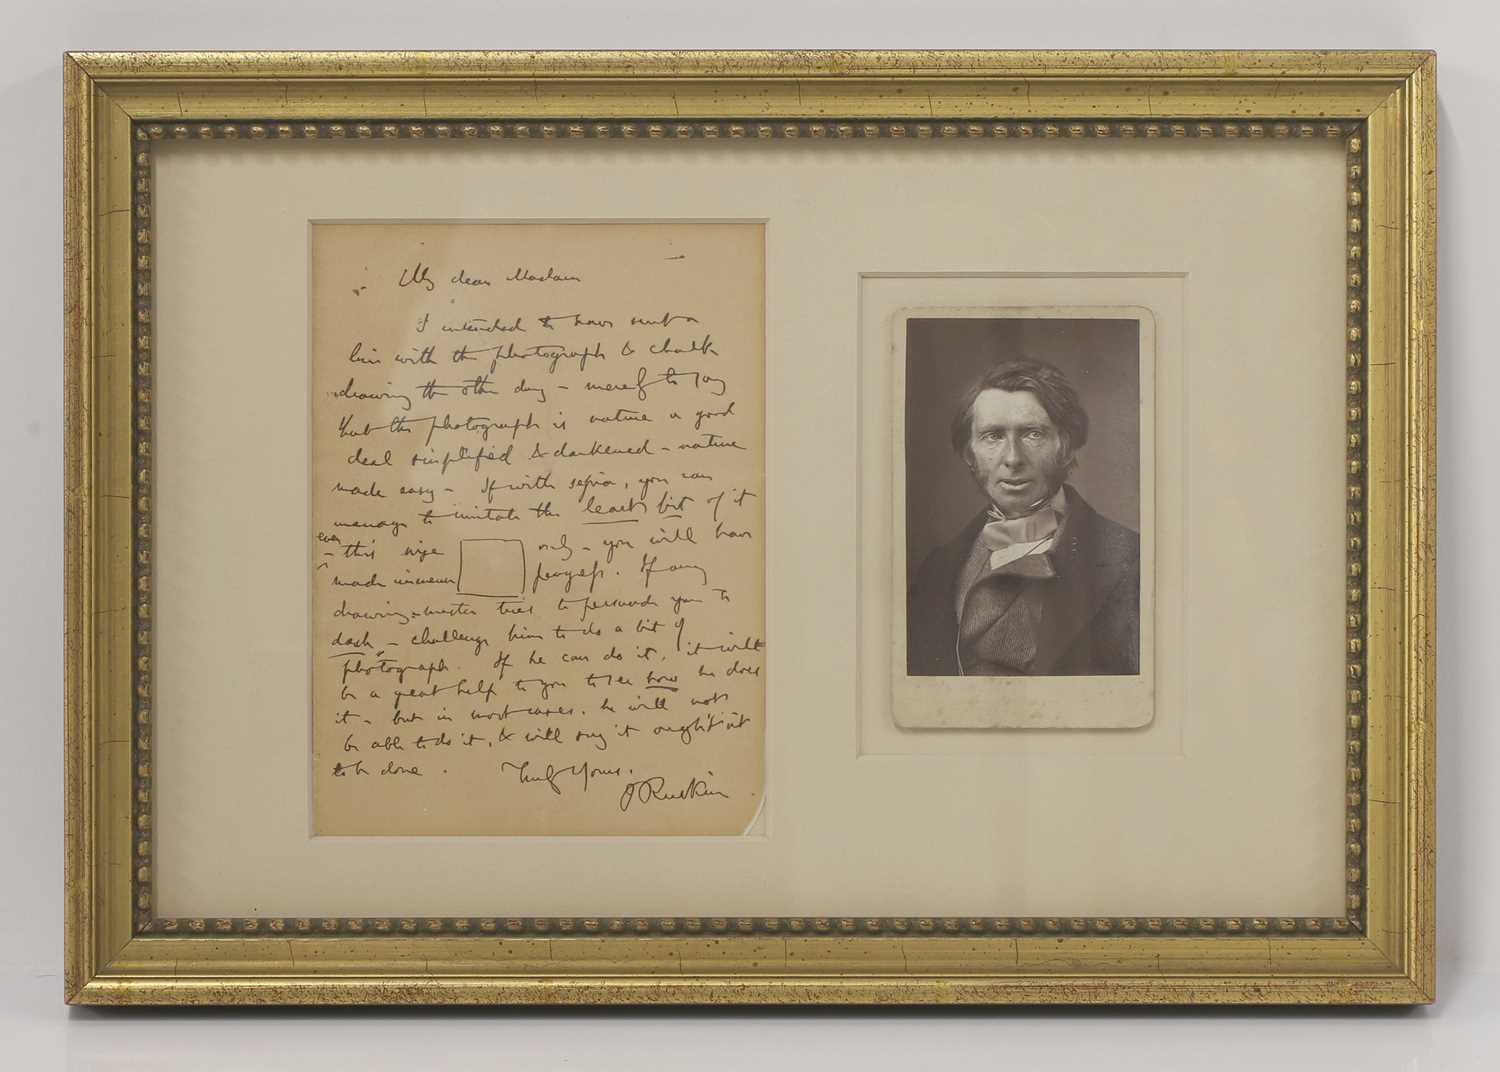 My dear Madam
I intended to have sent a
line with the photograph & chalk
drawing the other day – merely to say
that the photograph is nature a good
deal simplified & darkened – nature
made easy – If with sepia, you can
manage to imitate the least bit of it
even
– this size only – you will have
made immense progress. If any
drawing-master tries to persuade you to
dash – challenge him to do a bit of
photograph. If he can do it, it will
be a great help to you to see how he does
it – but in most cases, he will not
be able to do it, & will say it oughtn't
to be done. Truly Yours.
J Ruskin